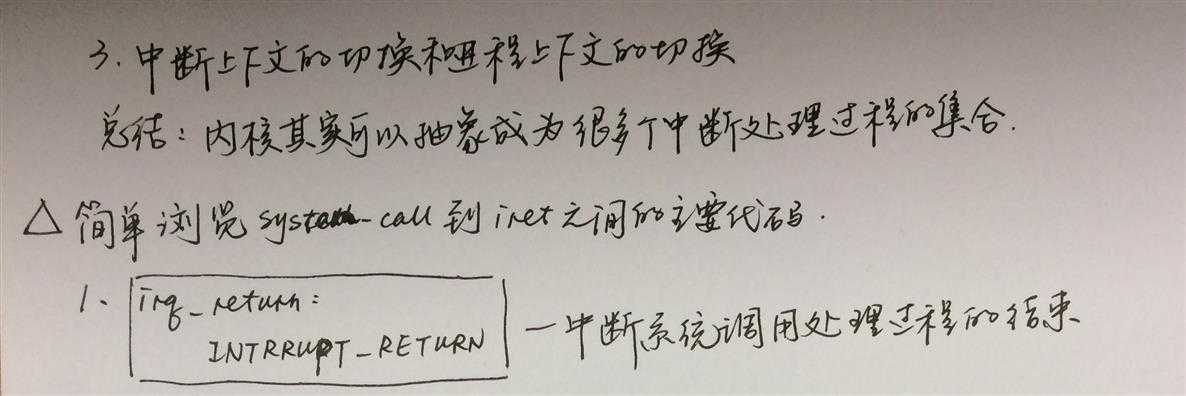 3. 中断上下文的切换和进程上下文的切换
总结：内核其实可以抽象成为很多个中断处理过程的集合.
△ 简单浏览 system_call 到 iret 之间的主要代码.
1. irq_return: 
INTRRUPT_RETURN — 中断系统调用处理过程的结束